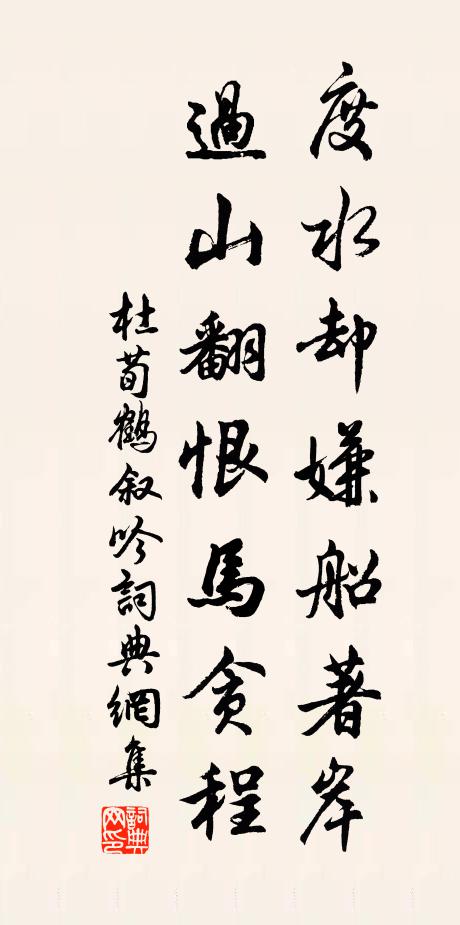 度水却嫌船著岸
過山翻恨馬貪程
杜荀鶴叙吟詞典網集
詞典網印